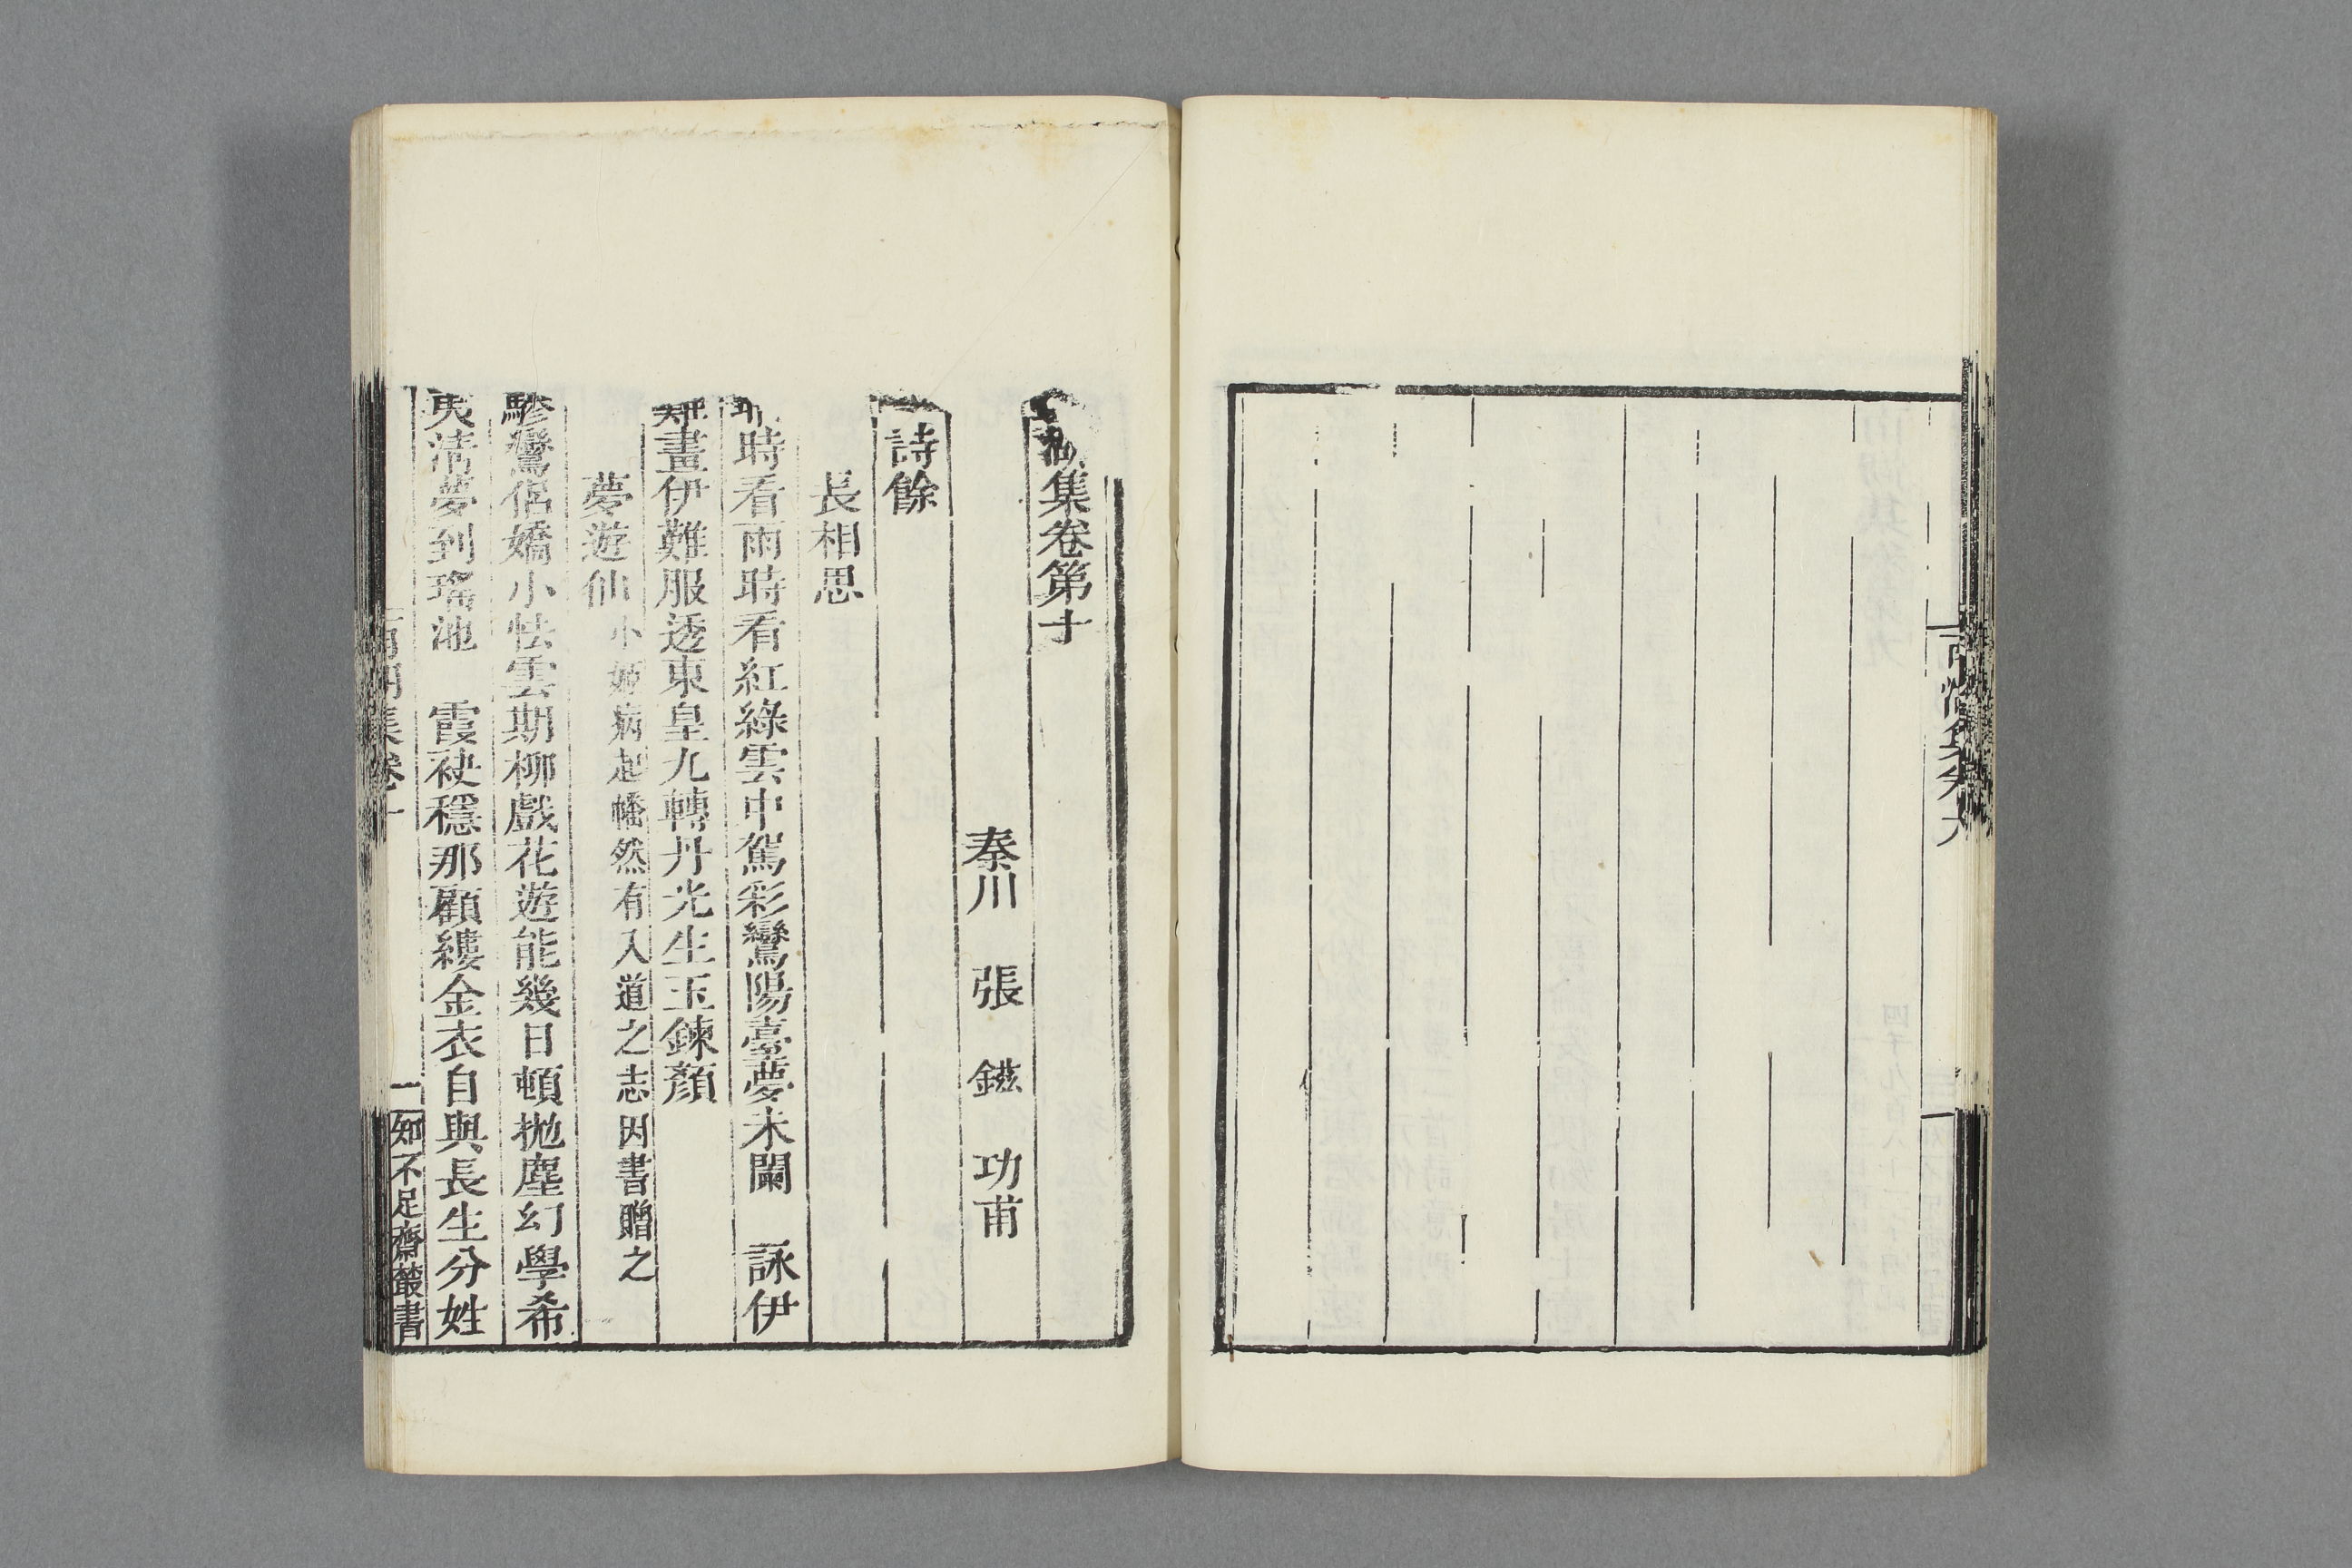 湖集卷第十
秦川　張　鎡　功甫
詩餘
長相思
時看雨時看紅綠雲中駕彩鸞陽臺夢未闌　詠伊
畫伊難服透東皇九轉丹光生玉鍊顏
夢遊仙 小姬病起幡然有入道之志因書贈之
驂鸞侶嬌小怯雲期柳戲花遊能幾日頓拋塵幻學希
夷清夢到瑤池　霞袂穩那顧縷金衣自與長生分姓
集卷十
一
知不足齋叢書